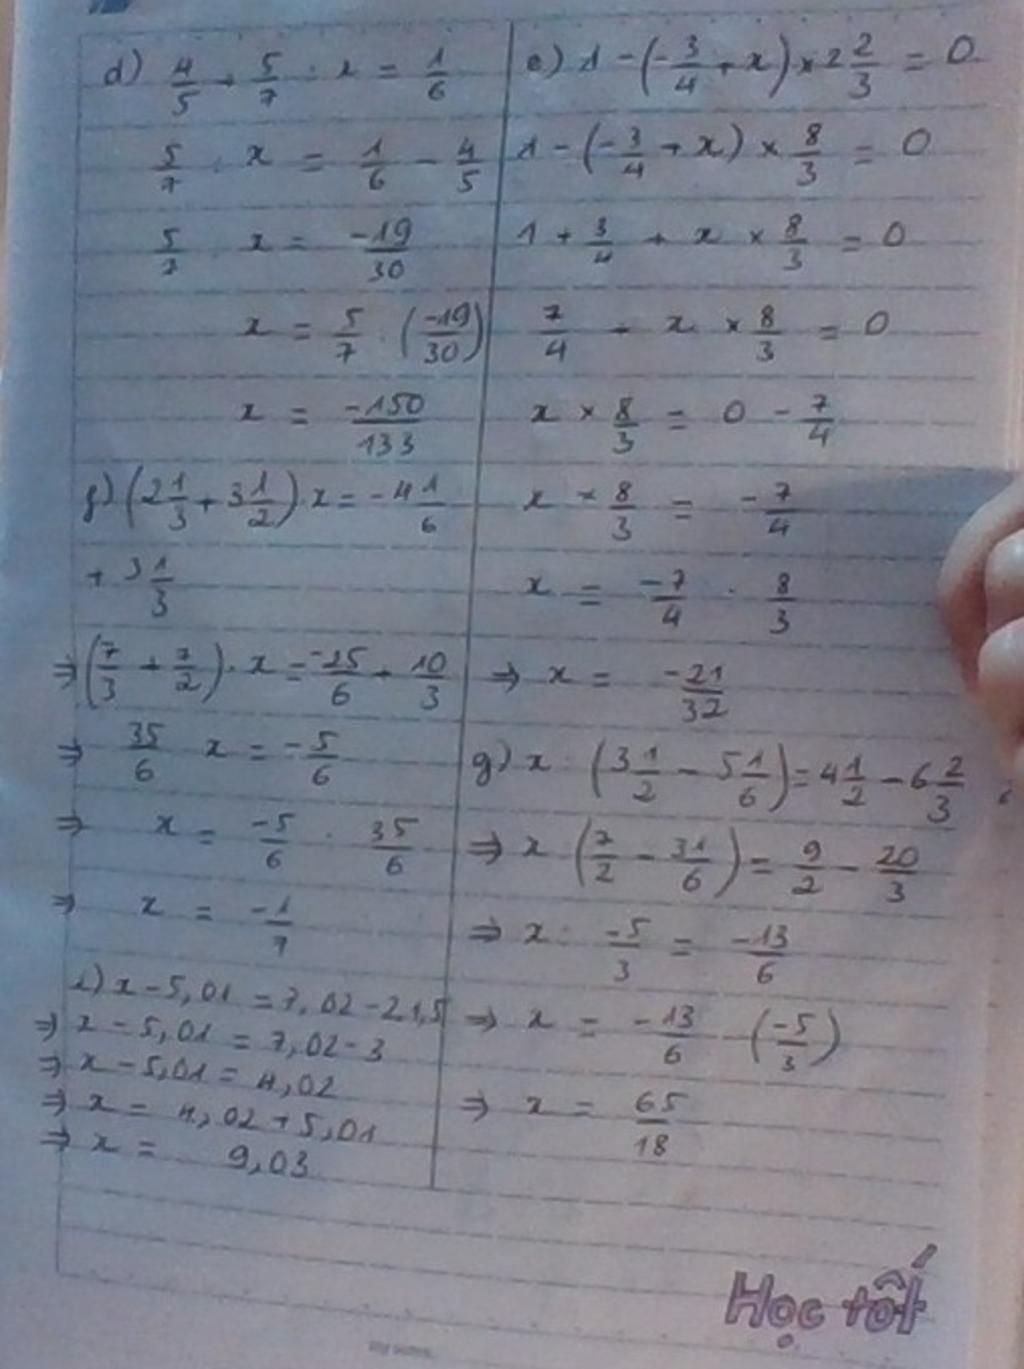 d) 4/5 + 5/7 : x = 1/6
5/7 : x = 1/6 - 4/5
5/7 x = -19/30
x = 5/7 : (-19/30)
x = -150/133
f) (2 1/3 + 3 1/2) : x = -4 1/6
+ 3 1/3
⇒ (7/3 + 7/2) : x = -25/6 + 10/3
⇒ 35/6 x = -5/6
⇒ x = -5/6 : 35/6
⇒ x = -1/7
i) x - 5,01 = 7,02 - 2.1,5
⇒ x - 5,01 = 7,02 - 3
⇒ x - 5,01 = 4,02
⇒ x = 4,02 + 5,01
⇒ x = 9,03
e) 1 - (-3/4 + x) × 2 2/3 = 0
1 - (-3/4 + x) × 8/3 = 0
1 + 3/4 + x × 8/3 = 0
7/4 + x × 8/3 = 0
x × 8/3 = 0 - 7/4
x × 8/3 = -7/4
x = -7/4 : 8/3
⇒ x = -21/32
g) x : (3 1/2 - 5 1/6) = 4 1/2 - 6 2/3
⇒ x : (7/2 - 31/6) = 9/2 - 20/3
⇒ x : -5/3 = -13/6
⇒ x = -13/6 . (-5/3)
⇒ x = 65/18
Học tốt